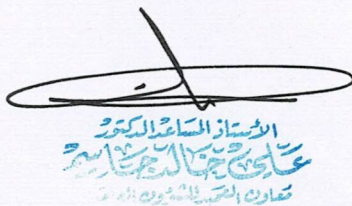 الأستاذ المساعد الدكتور
علي خالد جاسم
معاون العميد للشؤون